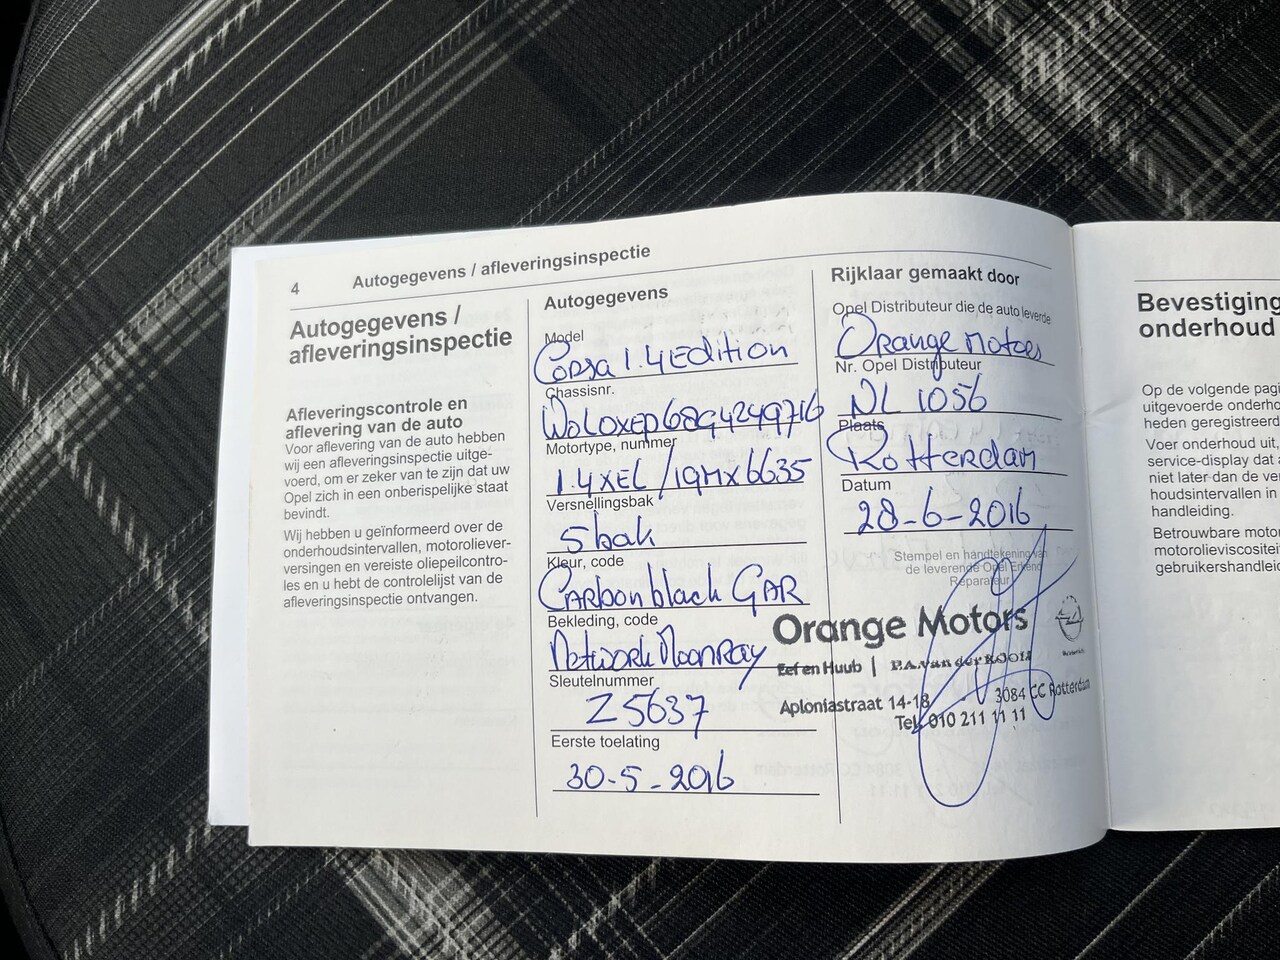 4
Autogegevens / afleveringsinspectie
Autogegevens /
afleveringsinspectie
Afleveringscontrole en
aflevering van de auto
Voor aflevering van de auto hebben
wij een afleveringsinspectie uitge-
voerd, om er zeker van te zijn dat uw
Opel zich in een onberispelijke staat
bevindt.
Wij hebben u geïnformeerd over de
onderhoudsintervallen, motoroliever-
versingen en vereiste oliepeilcontro-
les en u hebt de controlelijst van de
afleveringsinspectie ontvangen.
Autogegevens
Model
Corsa 1.4 Edition
Chassisnr.
W0L0XEP68G4249716
Motortype, nummer
1.4XEL / 19MX6635
Versnellingsbak
5bak
Kleur, code
Carbon black GAR
Bekleding, code
Network MoonRay
Sleutelnummer
Z5637
Eerste toelating
30-5-2016
Rijklaar gemaakt door
Opel Distributeur die de auto leverde
Orange Motors
Nr. Opel Distributeur
NL 1056
Plaats
Rotterdam
Datum
28-6-2016
Stempel en handtekening van
de leverende Opel Erkend
Reparateur
Orange Motors
Eef en Huub | P.A. van der Kooij
Aploniastraat 14-18 3084 CC Rotterdam
Tel. 010 211 11 11
Bevestiging
onderhoud
Op de volgende pagi
uitgevoerde onderho
heden geregistreerd
Voor onderhoud uit,
service-display dat a
niet later dan de ver
houdsintervallen in
handleiding.
Betrouwbare moto
motorolieviscositei
gebruikershandleid